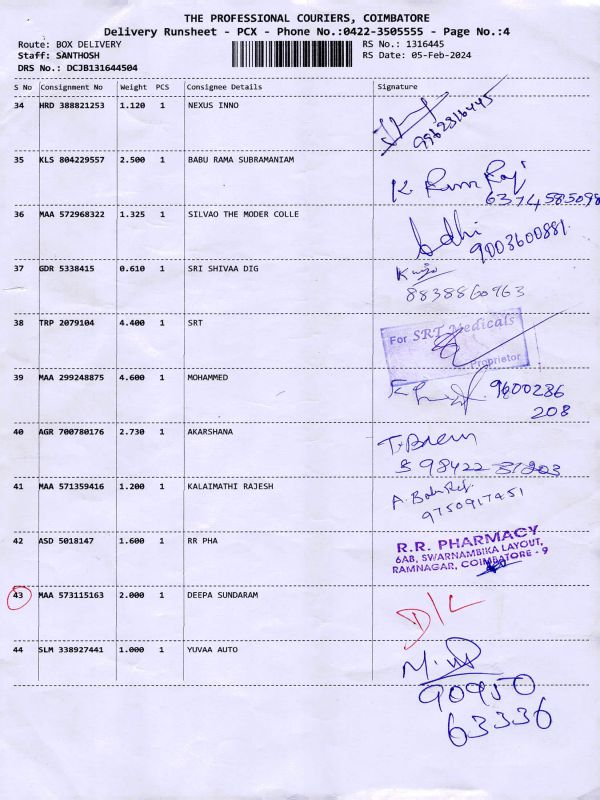 THE PROFESSIONAL COURIERS, COIMBATORE
Delivery Runsheet - PCX - Phone No.:0422-3505555 - Page No.:4
Route: BOX DELIVERY RS No.: 1316445
Staff: SANTHOSH RS Date: 05-Feb-2024
DRS No.: DCJB131644504
S No Consignment No Weight PCS Consignee Details Signature
34 HRD 388821253 1.120 1 NEXUS INNO
9962816445
35 KLS 804229557 2.500 1 BABU RAMA SUBRAMANIAM
K. Ram Raj
6374585098
36 MAA 572968322 1.325 1 SILVAO THE MODER COLLE
9003600881.
37 GDR 5338415 0.610 1 SRI SHIVAA DIG
8838860963
38 TRP 2079104 4.400 1 SRT
For SRT Medicals
Proprietor
39 MAA 299248875 4.600 1 MOHAMMED
9600286
208
40 AGR 700780176 2.730 1 AKARSHANA
98422 81203
41 MAA 571359416 1.200 1 KALAIMATHI RAJESH
9750917451
42 ASD 5018147 1.600 1 RR PHA
R.R. PHARMACY
6AB, SWARNAMBIKA LAYOUT,
RAMNAGAR, COIMBATORE - 9
43 MAA 573115163 2.000 1 DEEPA SUNDARAM
D/L
44 SLM 338927441 1.000 1 YUVAA AUTO
90950
63336